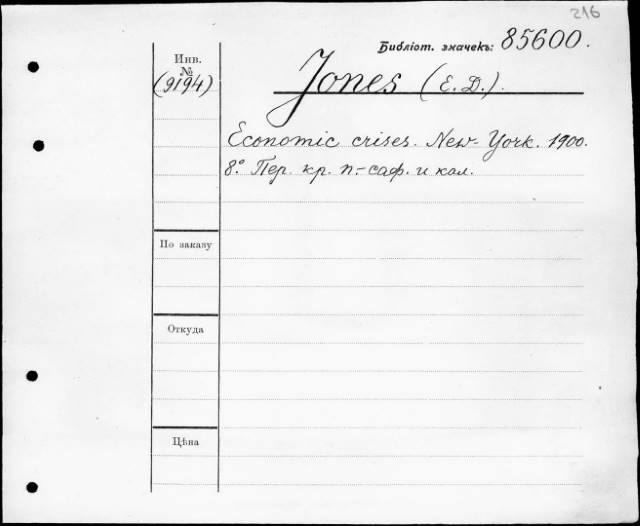 216
Библіот. значекъ: 85600.
Инв.
№
(9194)
Jones (E. D.).
Economic crises. New-York. 1900.
8º Пер. кр. п.-саф. и кал.
По заказу
Откуда
Цѣна